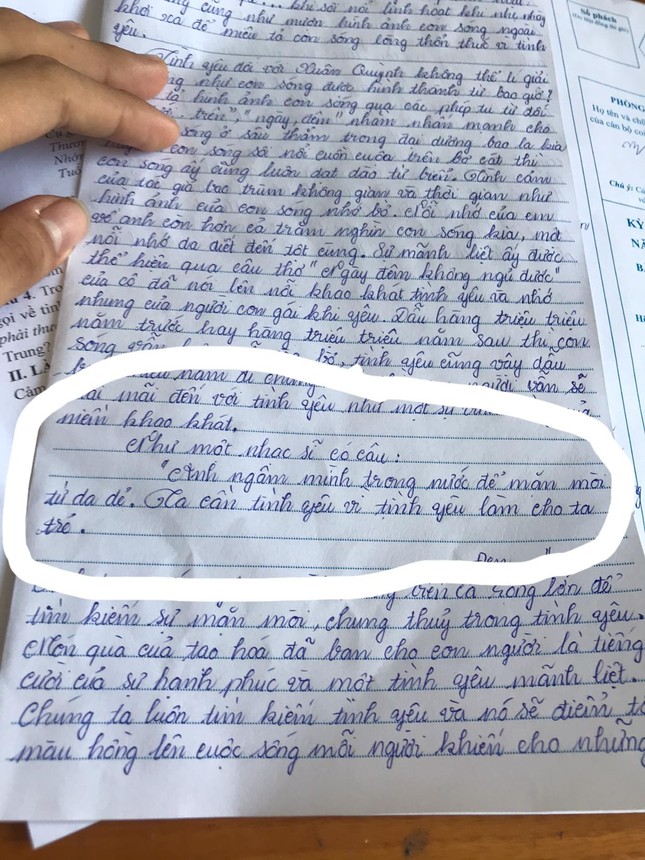 khơi xa để miêu tả con sóng lòng thổn thức vì tình
yêu.
Tình yêu đối với Xuân Quỳnh không thể lí giải
như con sóng được hình thành từ bao giờ?
hình ảnh con sóng qua các phép tu từ đối
trên", "ngày, đêm" nhằm nhấn mạnh cho
sóng ở sâu thẳm trong đại dương bao la kia
con sóng sôi nổi cuồn cuộn trên bờ cát thì
con sóng ấy cũng luôn dạt dào từ biển. Tình cảm
của tác giả bao trùm không gian và thời gian như
hình ảnh của con sóng nhớ bờ. Nỗi nhớ của em
về anh còn hơn cả trăm nghìn con sóng kia, một
nỗi nhớ da diết đến tột cùng. Sự mãnh liệt ấy được
thể hiện qua câu thơ "Ngày đêm không ngủ được"
của cô đã nói lên nỗi khao khát tình yêu và nhớ
nhung của người con gái khi yêu. Dẫu hàng triệu triệu
năm trước hay hàng triệu triệu năm sau thì con
sóng vẫn bờ, tình yêu cũng vậy dẫu
năm đi chăng người vẫn sẽ
mãi đến với tình yêu như một sự
niềm khao khát.
Như một nhạc sĩ có câu:
"Anh ngâm mình trong nước để mặn mòi
từ da dẻ. Ta cần tình yêu vì tình yêu làm cho ta
trẻ.
Đen
trên cả rộng lớn để
tìm kiếm sự mặn mòi, chung thuỷ trong tình yêu.
Món quà của tạo hoá đã ban cho con người là tiếng
cười của sự hạnh phúc và một tình yêu mãnh liệt.
Chúng ta luôn tìm kiếm tình yêu và nó sẽ điểm tô
màu hồng lên cuộc sống mỗi người khiến cho những
Số phách
PHÒNG
Họ tên và chữ
của cán bộ coi
Chú ý:
KỲ
4.
gọi về tình
phải thươ
Trung?
II. LÀ
Câm